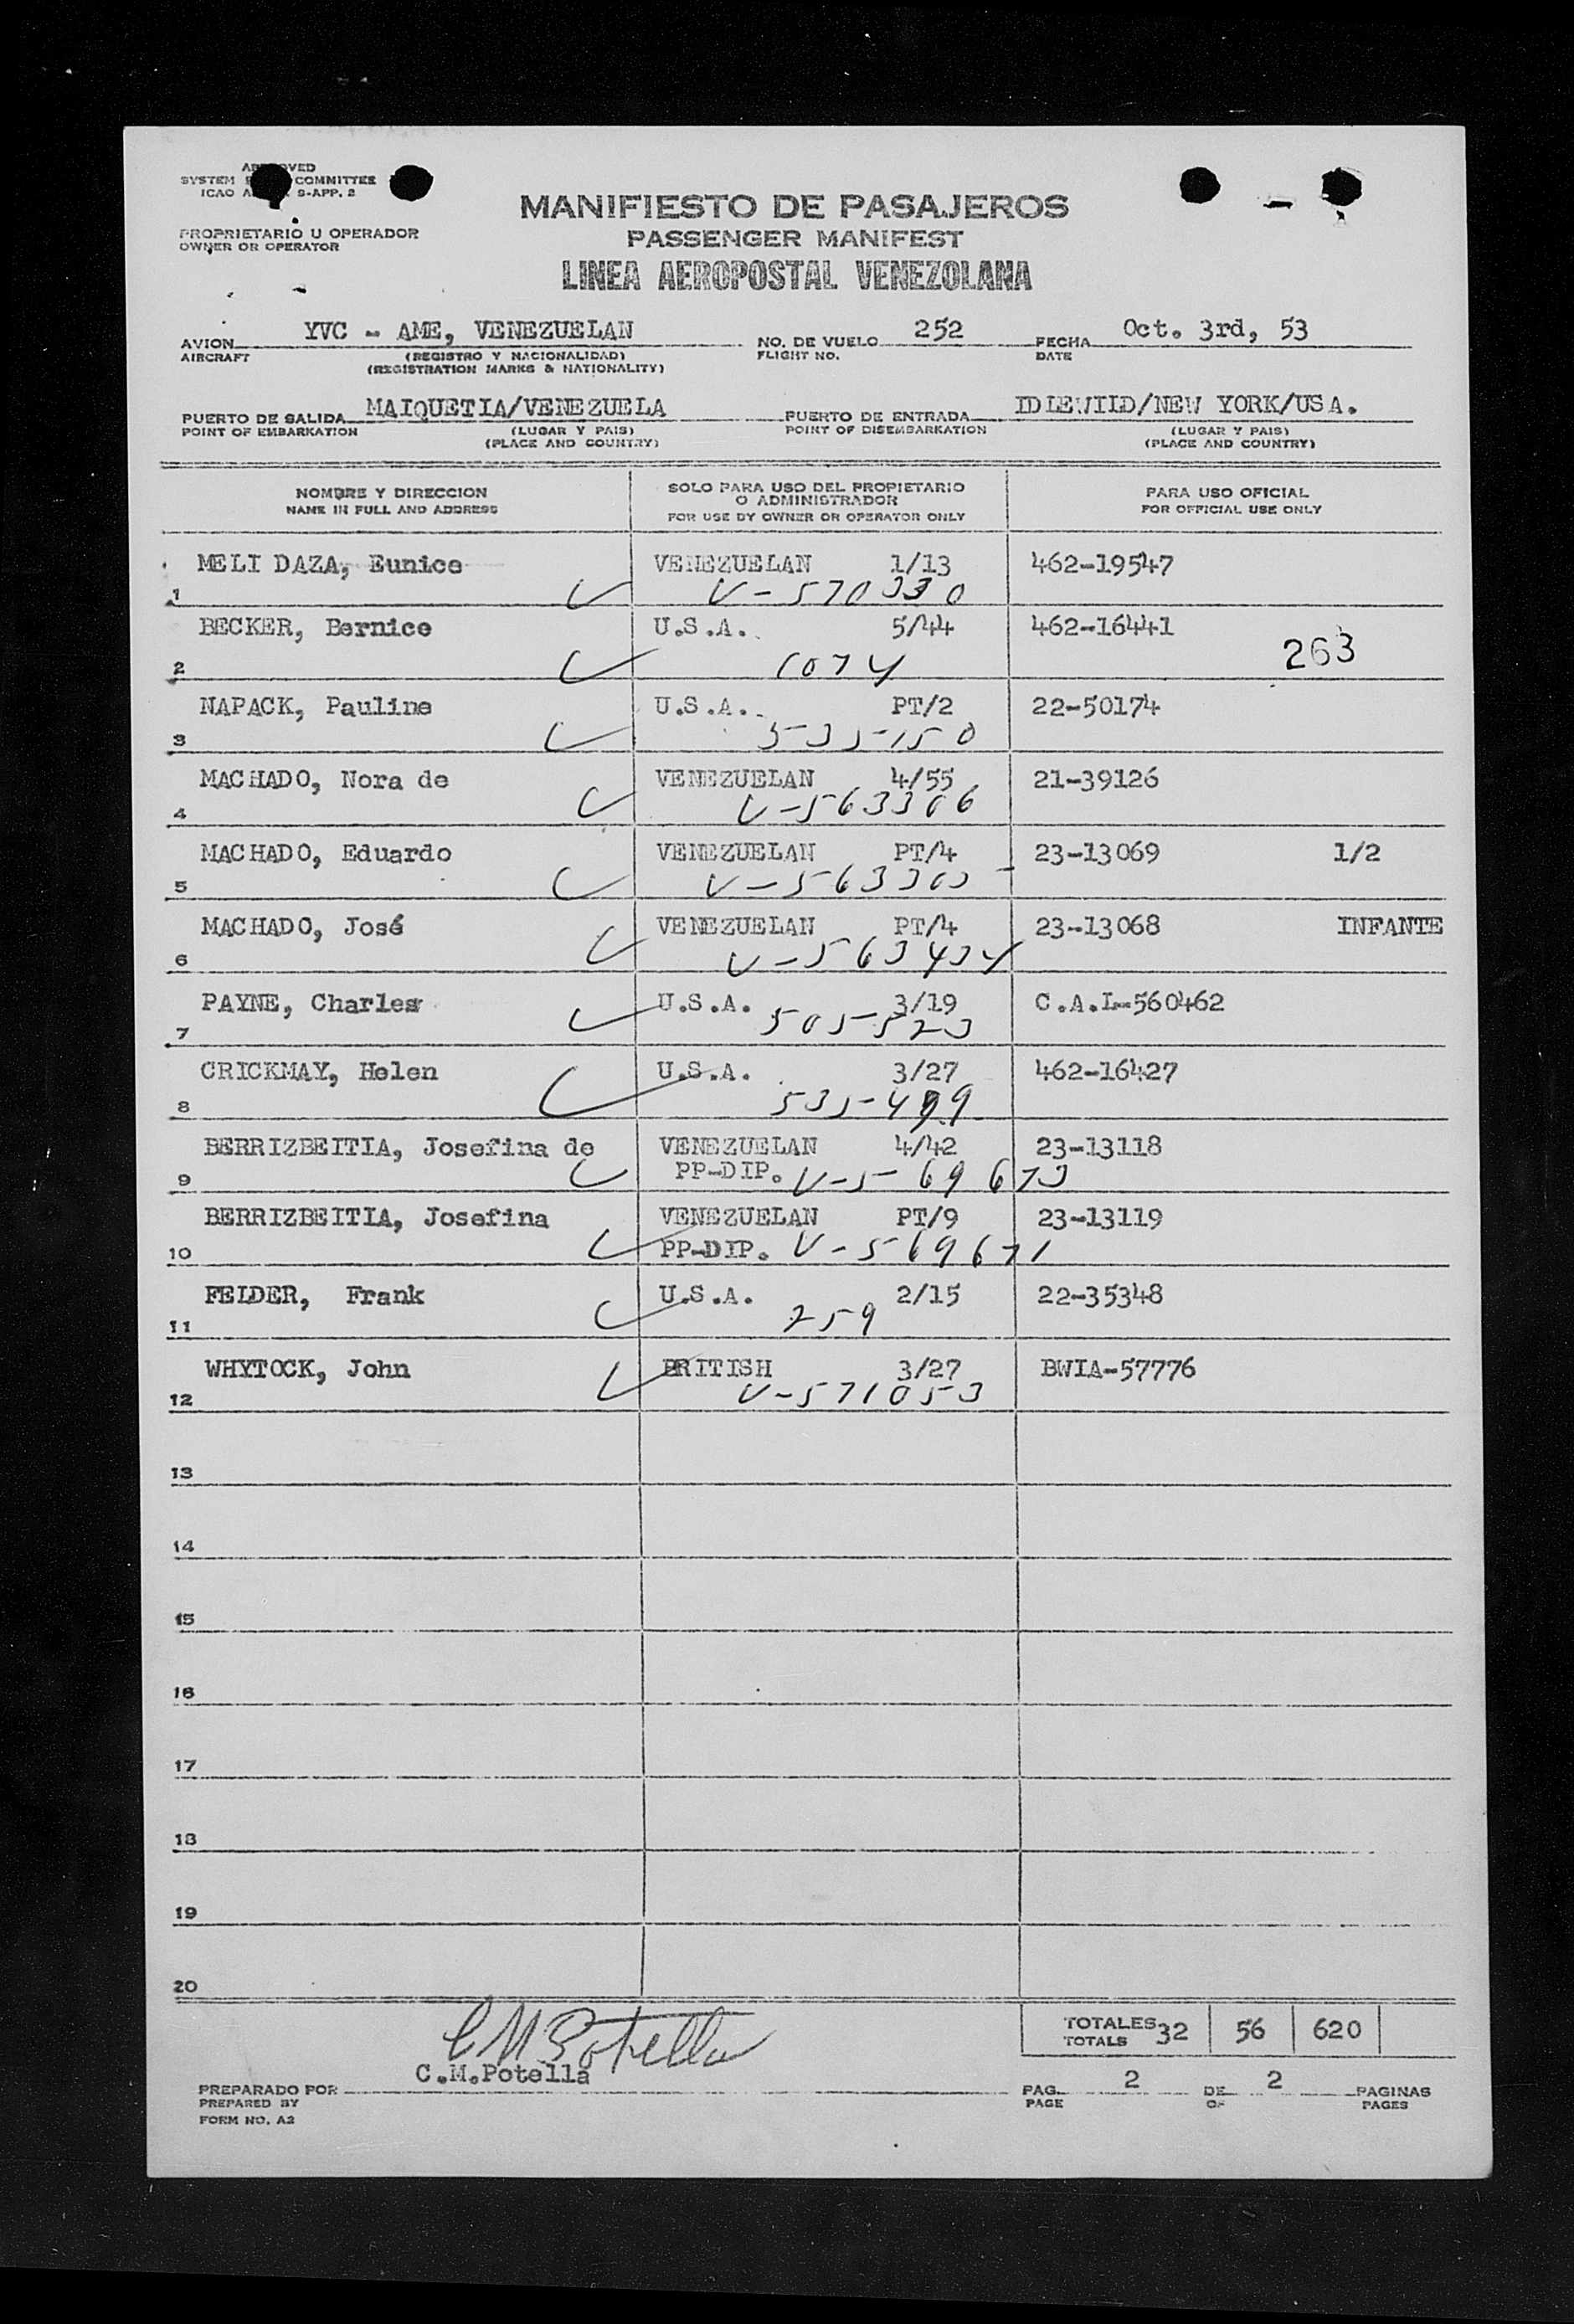 APPROVED
SYSTEM COMMITTEE
ICAO S-APP. 2
PROPRIETARIO U OPERADOR
OWNER OR OPERATOR
MANIFIESTO DE PASAJEROS
PASSENGER MANIFEST
LINEA AEROPOSTAL VENEZOLANA
AVION YVC - AME, VENEZUELAN NO. DE VUELO 252 FECHA Oct. 3rd, 53
AIRCRAFT (REGISTRO Y NACIONALIDAD) FLIGHT NO. DATE
(REGISTRATION MARKS & NATIONALITY)
PUERTO DE SALIDA MAIQUETIA/VENEZUELA PUERTO DE ENTRADA IDLEWILD/NEW YORK/USA.
POINT OF EMBARKATION (LUGAR Y PAIS) POINT OF DISEMBARKATION (LUGAR Y PAIS)
(PLACE AND COUNTRY) (PLACE AND COUNTRY)
NOMBRE Y DIRECCION SOLO PARA USO DEL PROPIETARIO O ADMINISTRADOR PARA USO OFICIAL
NAME IN FULL AND ADDRESS FOR USE BY OWNER OR OPERATOR ONLY FOR OFFICIAL USE ONLY
MELI DAZA, Eunice VENEZUELAN 1/13 462-19547
1 V-570330
BECKER, Bernice U.S.A. 5/44 462-16441
2 1074 263
NAPACK, Pauline U.S.A. PT/2 22-50174
3 535-150
MACHADO, Nora de VENEZUELAN 4/55 21-39126
4 V-563366
MACHADO, Eduardo VENEZUELAN PT/4 23-13069 1/2
5
MACHADO, José VENEZUELAN PT/4 23-13068 INFANTE
6 V-563434
PAYNE, Charles U.S.A. 3/19 C.A.L-560462
7
CRICKMAY, Helen U.S.A. 3/27 462-16427
8
BERRIZBEITIA, Josefina de VENEZUELAN 4/42 23-13118
9 PP-DIP. V-569673
BERRIZBEITIA, Josefina VENEZUELAN PT/9 23-13119
10 PP-DIP. V-569671
FELDER, Frank U.S.A. 2/15 22-35348
11 259
WHYTOCK, John BRITISH 3/27 BWIA-57776
12 V-571053
13
14
15
16
17
18
19
20
TOTALES 32 56 620
TOTALS
C.M.Potella
PREPARADO POR PAG. 2 DE 2 PAGINAS
PREPARED BY PAGE OF PAGES
FORM NO. A2